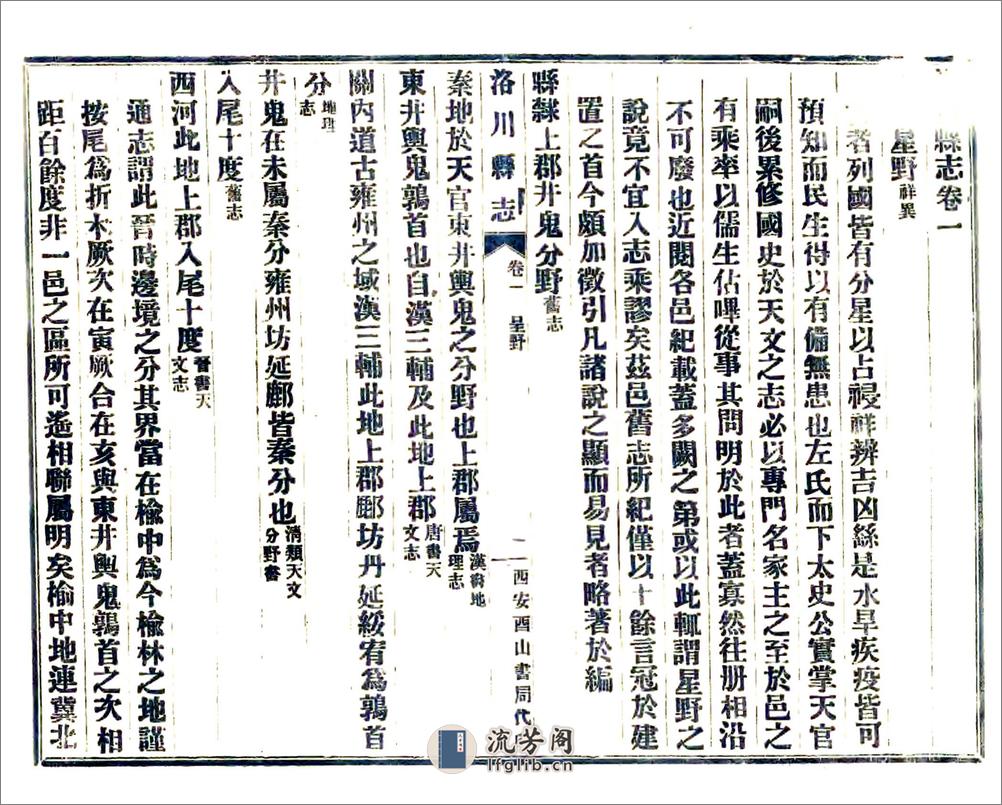 縣志卷一
星野祥異
者列國皆有分星以占祲祥辨吉凶繇是水旱疾疫皆可
預知而民生得以有備無患也左氏而下太史公實掌天官
嗣後累修國史於天文之志必以專門名家主之至於邑之
有乘率以儒生佔嗶從事其問明於此者蓋寡然往册相沿
不可廢也近閱各邑紀載蓋多闕之第或以此輒謂星野之
說竟不宜入志乘謬矣茲邑舊志所紀僅以十餘言冠於建
置之首今頗加徵引凡諸說之顯而易見者略著於編
縣隸上郡井鬼分野舊志
洛川縣志 卷一 星野 一 西安酉山書局代
秦地於天官東井輿鬼之分野也上郡屬焉漢書地理志
東井輿鬼鶉首也自漢三輔及此地上郡唐書天文志
關內道古雍州之域漢三輔此地上郡鄜坊丹延綏宥為鶉首
分地理志
井鬼在未屬秦分雍州坊延鄜皆秦分也清類天文分野書
入尾十度舊志
西河此地上郡入尾十度晉書天文志
通志謂此晉時邊境之分其界當在榆中為今榆林之地謹
按尾為折木厥次在寅厥合在亥與東井輿鬼鶉首之次相
距百餘度非一邑之區所可遙相聯屬明矣榆中地連冀北
流芳阁
lfglib.cn